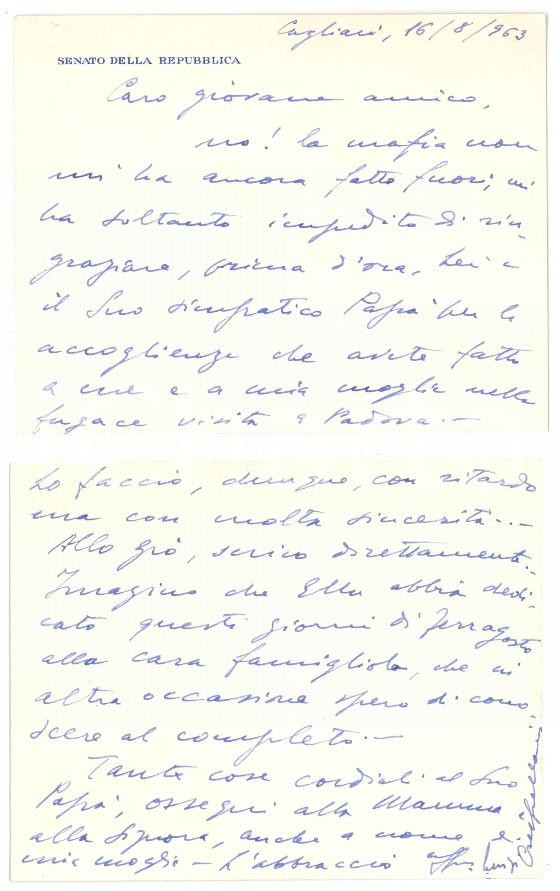 Cagliari, 16/8/963
SENATO DELLA REPUBBLICA
Caro giovane amico,
no! la mafia non
mi ha ancora fatto fuori; mi
ha soltanto impedito di rin-
graziare, prima d'ora, Lei e
il Suo simpatico Papà per le
accoglienze che avete fatto
a me e a mia moglie nella
fugace visita a Padova.-
Lo faccio, dunque, con ritardo
ma con molta sincerità.-
scrivo direttamente.
Imagino che Ella abbia dedi-
cato questi giorni di Ferragosto
alla cara famigliola, che in
altra occasione spero di cono-
scere al completo.-
Tante cose cordiali al Suo
Papà, ossequi alla Mamma e
alla Signora, anche a nome di
mia moglie - L'abbraccio Luigi